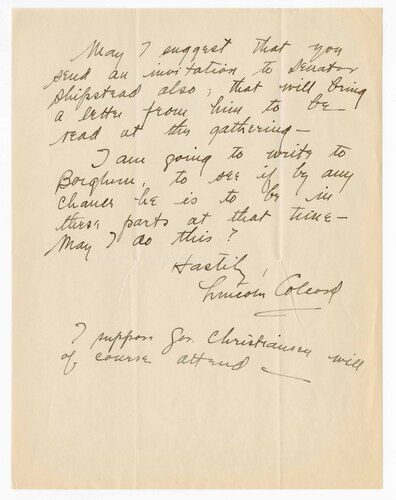 May I suggest that you
send an invitation to Senator
Shipstead also; that will bring
a letter from him to be
read at this gathering—
I am going to write to
Borglum, to see if by any
chance he is to be in
these parts at that time—
May I do this?
Hastily,
Lincoln Colcord
I suppose Gov. Christiansen will
of course attend—